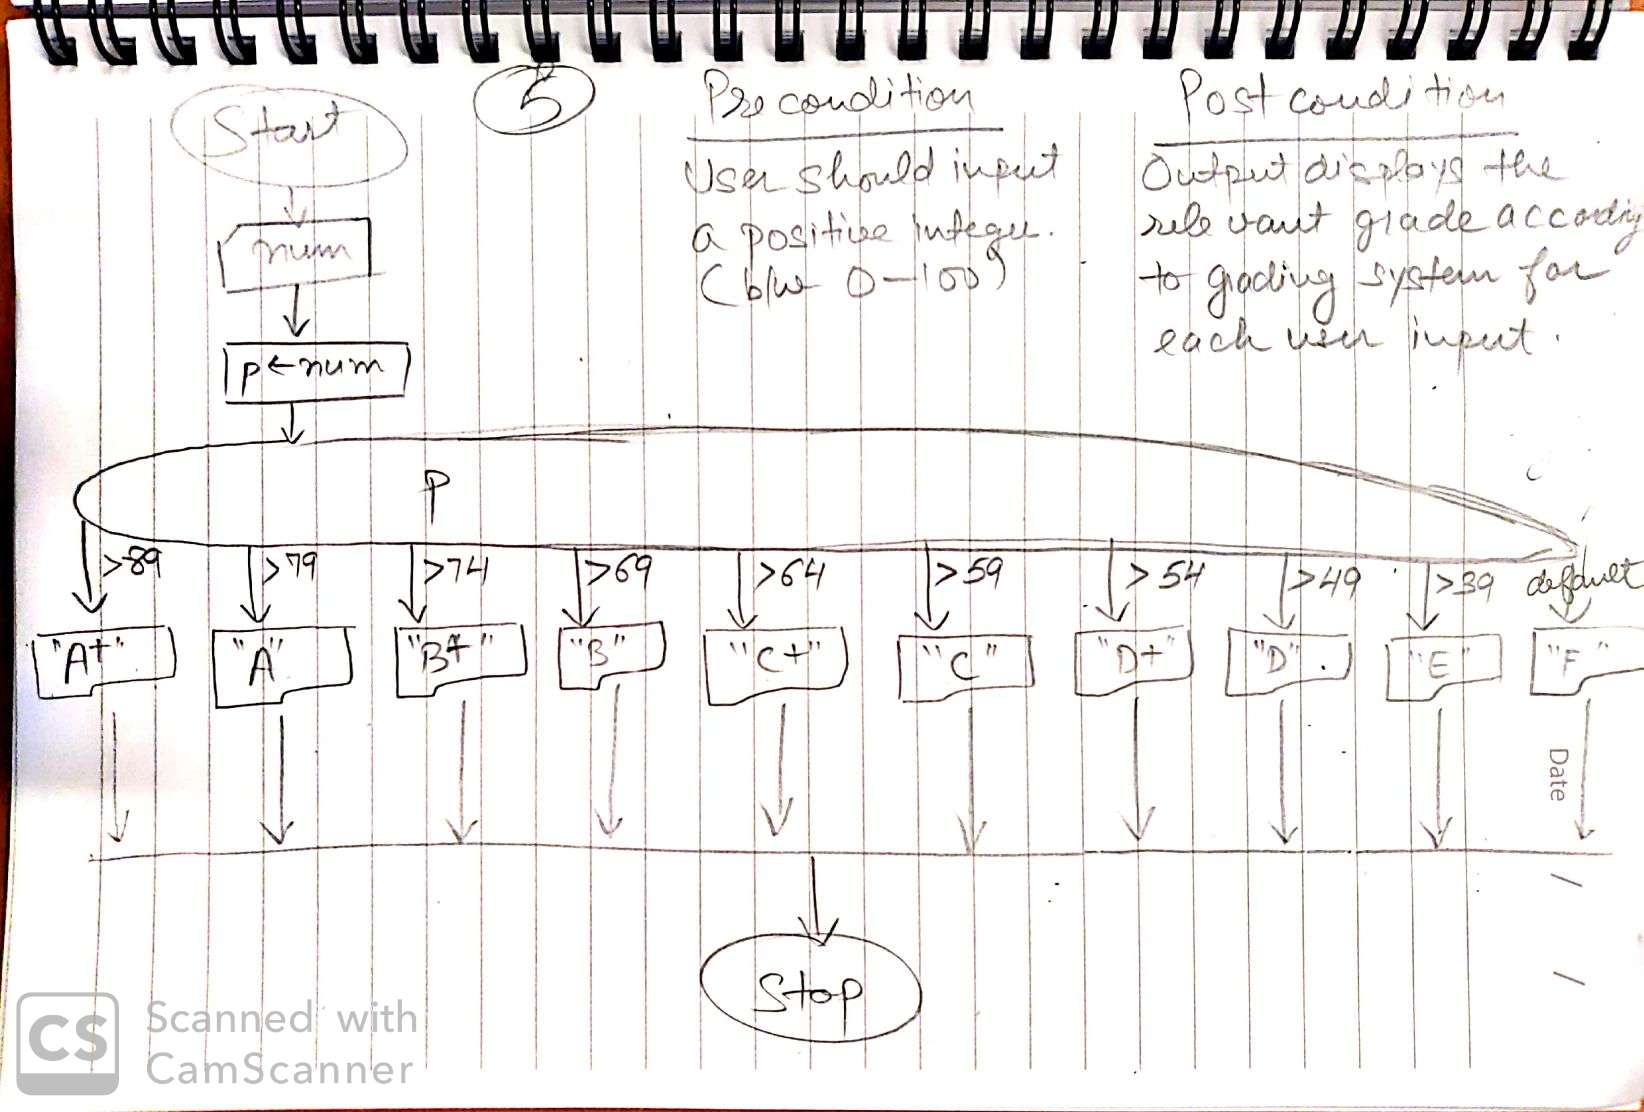 Start
5
Precondition
User should input
a positive integer.
(b/w 0-100)
Post condition
Output displays the
relevant grade according
to grading system for
each user input.
num
p←num
P
>89
>79
>74
>69
>64
>59
>54
>49
>39
default
"A+"
"A"
"B+"
"B"
"C+"
"C"
"D+"
"D"
"E"
"F"
Date
/
/
Stop
CS
Scanned with
CamScanner